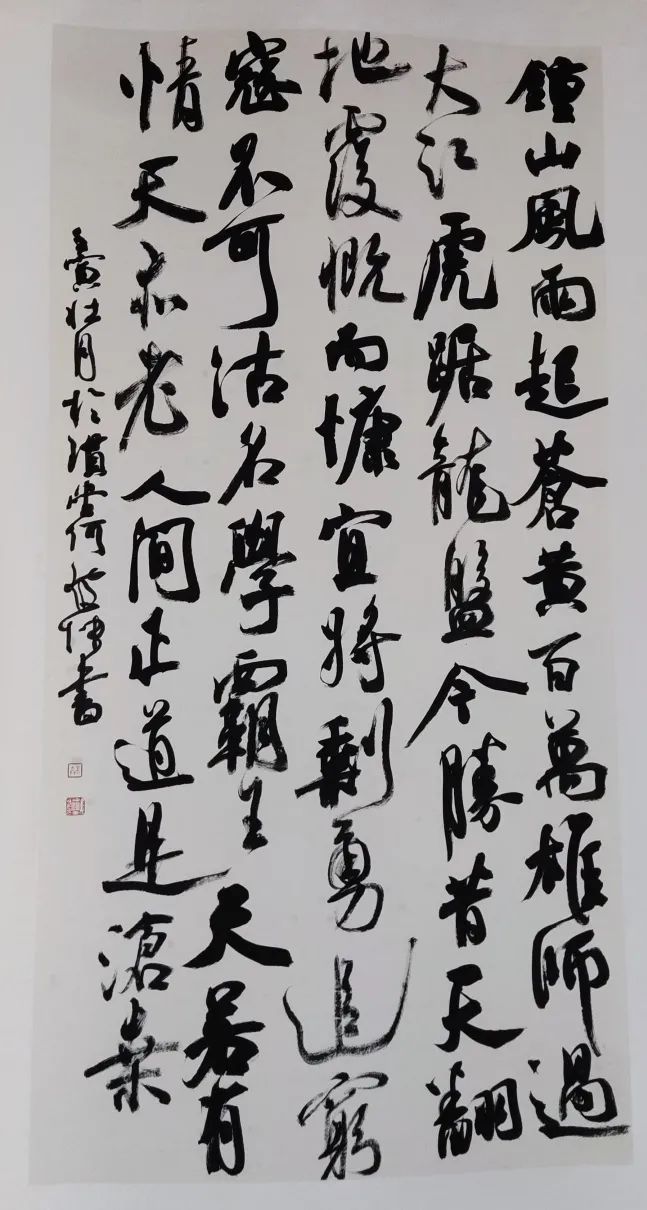 鍾山風雨起蒼黃百萬雄師過
大江虎踞龍盤今勝昔天翻
地覆慨而慷宜將剩勇追窮
寇不可沽名學霸王天若有
情天亦老人間正道是滄桑
壬寅壯月於書